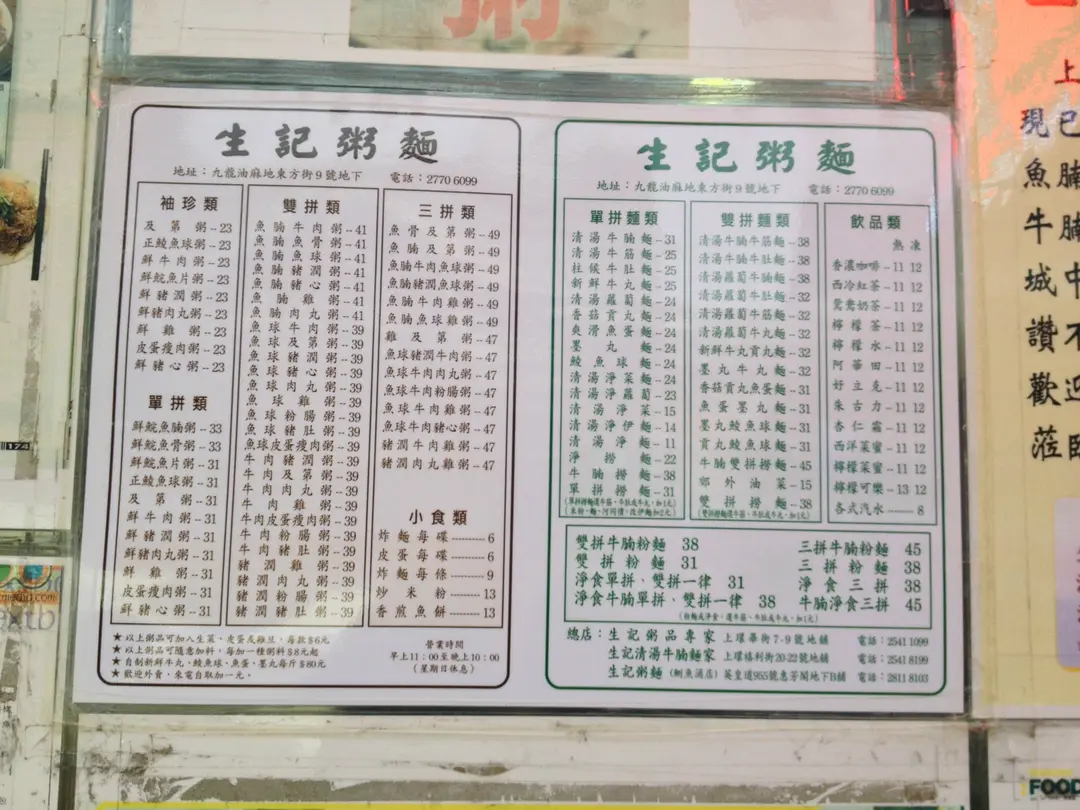 粥
生記粥麵
地址：九龍油麻地東方街9號地下 電話：2770 6099
袖珍類
及第粥--23
正鯪魚球粥--23
鮮牛肉粥--23
鮮鯇魚片粥--23
鮮豬潤粥--23
鮮豬肉丸粥--23
鮮雞粥--23
皮蛋瘦肉粥--23
鮮豬心粥--23
單拼類
鮮鯇魚腩粥--33
鮮鯇魚骨粥--33
鮮鯇魚片粥--31
正鯪魚球粥--31
及第粥--31
鮮牛肉粥--31
鮮豬潤粥--31
鮮豬肉丸粥--31
鮮雞粥--31
皮蛋瘦肉粥--31
鮮豬心粥--31
雙拼類
魚腩牛肉粥--41
魚腩魚骨粥--41
魚腩魚球粥--41
魚腩豬潤粥--41
魚腩豬心粥--41
魚腩雞粥--41
魚腩肉丸粥--41
魚球牛肉粥--39
魚球及第粥--39
魚球豬潤粥--39
魚球豬心粥--39
魚球肉丸粥--39
魚球雞粥--39
魚球粉腸粥--39
魚球豬肚粥--39
魚球皮蛋瘦肉粥--39
牛肉豬潤粥--39
牛肉及第粥--39
牛肉肉丸粥--39
牛肉雞粥--39
牛肉皮蛋瘦肉粥--39
牛肉粉腸粥--39
牛肉豬肚粥--39
豬潤雞粥--39
豬潤肉丸粥--39
豬潤粉腸粥--39
豬潤豬肚粥--39
三拼類
魚骨及第粥--49
魚腩及第粥--49
魚腩牛肉魚球粥--49
魚腩豬潤魚球粥--49
魚腩牛肉雞粥--49
魚腩魚球雞粥--49
雞及第粥--47
魚球豬潤牛肉粥--47
魚球牛肉肉丸粥--47
魚球牛肉粉腸粥--47
魚球牛肉雞粥--47
魚球牛肉豬心粥--47
豬潤牛肉雞粥--47
豬潤肉丸雞粥--47
小食類
炸麵每碟--------6
皮蛋每碟--------6
炸麵每條--------9
炒米粉--------13
香煎魚餅--------13
★以上粥品可加入生菜、皮蛋或雞旦，每款$6元
★以上粥品可隨意加料，每加一種粥料$8元起
★自制新鮮牛丸、鯪魚球、魚蛋、墨丸每斤$80元
★歡迎外賣，來電自取加一元。
營業時間
早上11：00至晚上10：00
（星期日休息）
生記粥麵
地址：九龍油麻地東方街9號地下 電話：2770 6099
單拼麵類
清湯牛腩麵--31
清湯牛筋麵--25
柱候牛肚麵--25
新鮮牛丸麵--25
清湯蘿蔔麵--24
香菇貢丸麵--24
爽滑魚蛋麵--24
墨丸麵--24
鯪魚球麵--24
清湯淨菜麵--24
清湯淨蘿蔔--23
清湯淨菜--15
清湯淨伊麵--14
清湯淨麵--11
淨撈麵--22
牛腩撈麵--38
單拼撈麵--31
雙拼麵類
清湯牛腩牛筋麵--38
清湯牛腩牛肚麵--38
清湯蘿蔔牛腩麵--38
清湯蘿蔔牛肚麵--32
清湯蘿蔔牛筋麵--32
清湯蘿蔔牛丸麵--32
新鮮牛丸貢丸麵--32
墨丸牛丸麵--32
香菇貢丸魚蛋麵--31
魚蛋墨丸麵--31
墨丸鯪魚球麵--31
貢丸鯪魚球麵--31
牛腩雙拼撈麵--45
郊外油菜--15
雙拼撈麵--38
飲品類
熱 凍
香濃咖啡--11 12
西冷紅茶--11 12
鴛鴦奶茶--11 12
檸檬茶--11 12
檸檬水--11 12
阿華田--11 12
好立克--11 12
朱古力--11 12
杏仁霜--11 12
西洋菜蜜--11 12
檸檬菜蜜--11 12
檸檬可樂--13 12
各式汽水-----8
雙拼牛腩粉麵 38
雙拼粉麵 31
淨食單拼、雙拼一律 31
淨食牛腩單拼、雙拼一律 38
三拼牛腩粉麵 45
三拼粉麵 38
淨食三拼 38
牛腩淨食三拼 45
總店：生記粥品專家 上環畢街7-9號地舖 電話：2541 1099
生記清湯牛腩麵家 上環禧利街20-22號地舖 電話：2541 8199
生記粥麵（鰂魚涌店）英皇道955號惠芳閣地下B舖 電話：2811 8103
上
現已
魚腩
牛腩
城中
讚不
歡迎
蒞臨
FOOD